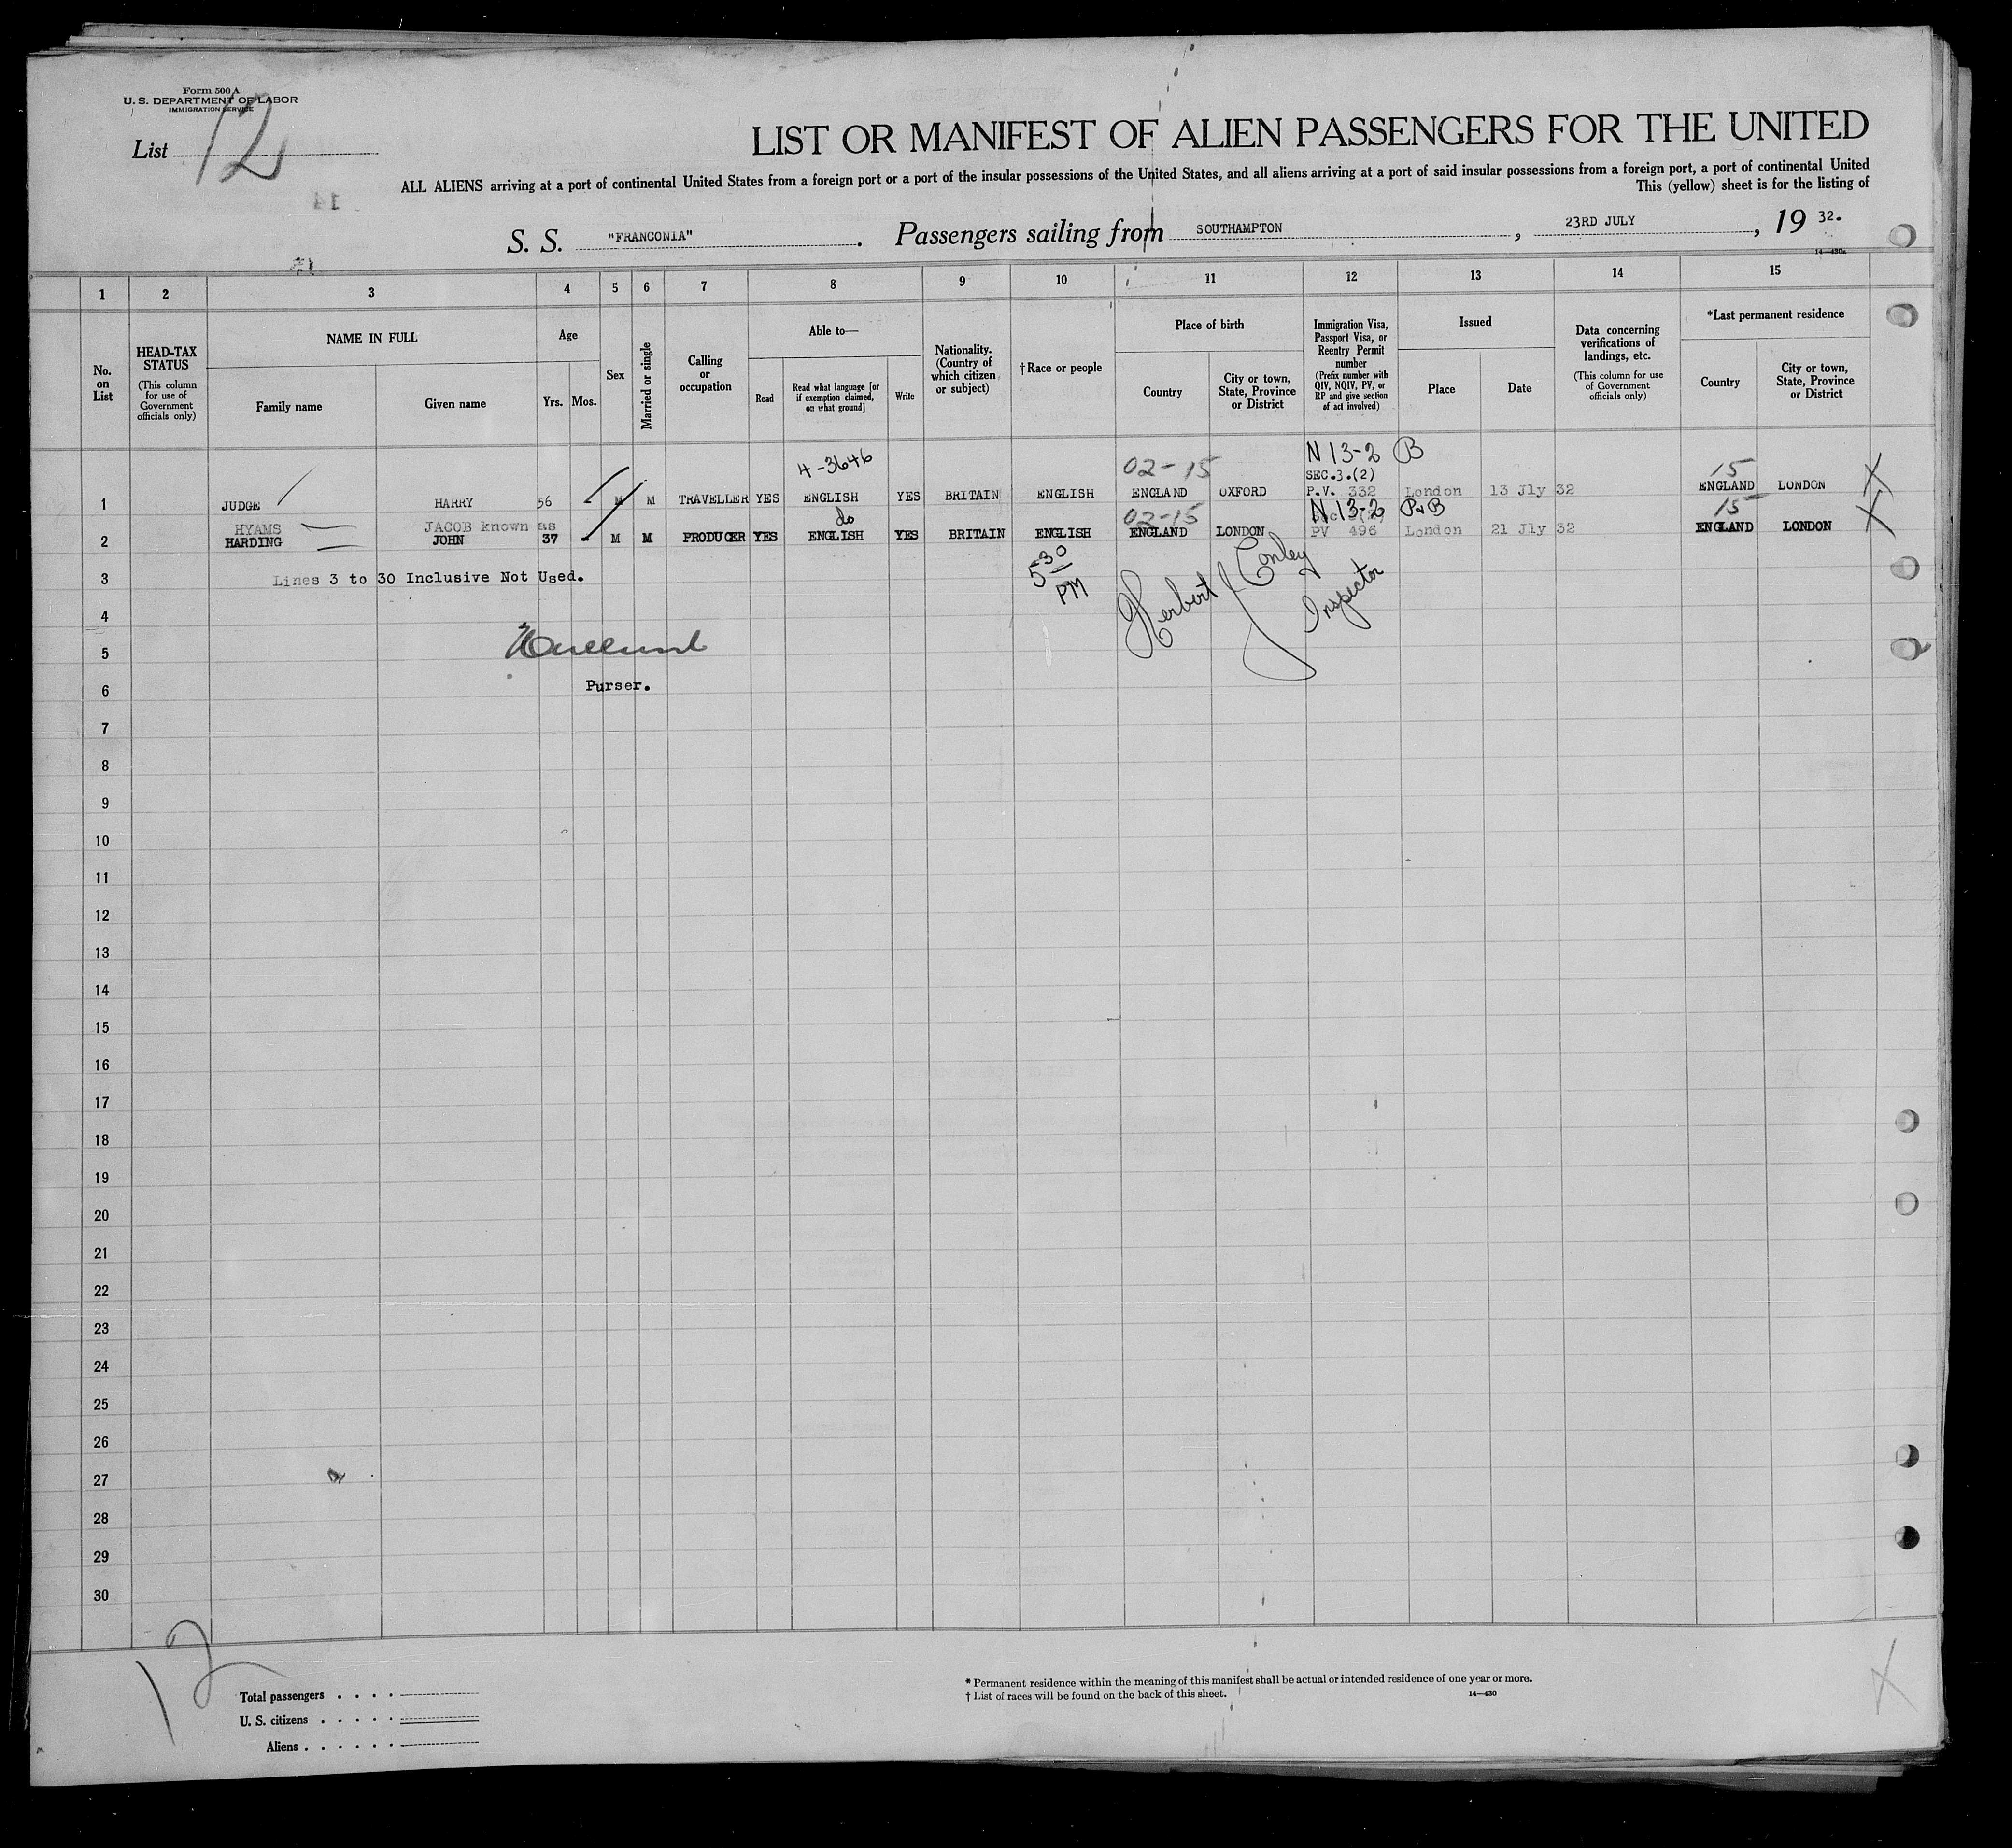 Form 500 A
U. S. DEPARTMENT OF LABOR
IMMIGRATION SERVICE
List 12
14
LIST OR MANIFEST OF ALIEN PASSENGERS FOR THE UNITED
ALL ALIENS arriving at a port of continental United States from a foreign port or a port of the insular possessions of the United States, and all aliens arriving at a port of said insular possessions from a foreign port, a port of continental United
This (yellow) sheet is for the listing of
S. S. "FRANCONIA". Passengers sailing from SOUTHAMPTON, 23RD JULY, 1932.
14—430a
1 2 3 4 5 6 7 8 9 10 11 12 13 14 15
No. on List
HEAD-TAX STATUS (This column for use of Government officials only)
NAME IN FULL
Family name
Given name
Age
Yrs.
Mos.
Sex
Married or single
Calling or occupation
Able to—
Read
Read what language [or if exemption claimed, on what ground]
Write
Nationality. (Country of which citizen or subject)
†Race or people
Place of birth
Country
City or town, State, Province or District
Immigration Visa, Passport Visa, or Reentry Permit number (Prefix number with QIV, NQIV, PV, or RP and give section of act involved)
Issued
Place
Date
Data concerning verifications of landings, etc. (This column for use of Government officials only)
*Last permanent residence
Country
City or town, State, Province or District
4-3646 02-15 N 13-2 B 15
SEC.3.(2)
1 JUDGE HARRY 56 - M M TRAVELLER YES ENGLISH YES BRITAIN ENGLISH ENGLAND OXFORD P.V. 332 London 13 Jly 32 ENGLAND LONDON X
do 02-15 N 13-2 P&B 15
HYAMS JACOB known as
2 HARDING JOHN 37 - M M PRODUCER YES ENGLISH YES BRITAIN ENGLISH ENGLAND LONDON PV 496 London 21 Jly 32 ENGLAND LONDON X
3 Lines 3 to 30 Inclusive Not Used.
5 30 PM
Herbert J Conley
Inspector
4
5
6 Purser.
7
8
9
10
11
12
13
14
15
16
17
18
19
20
21
22
23
24
25
26
27
28
29
30
12
Total passengers . . . .
U. S. citizens . . . . .
Aliens . . . . . .
* Permanent residence within the meaning of this manifest shall be actual or intended residence of one year or more.
† List of races will be found on the back of this sheet.
14—430
X